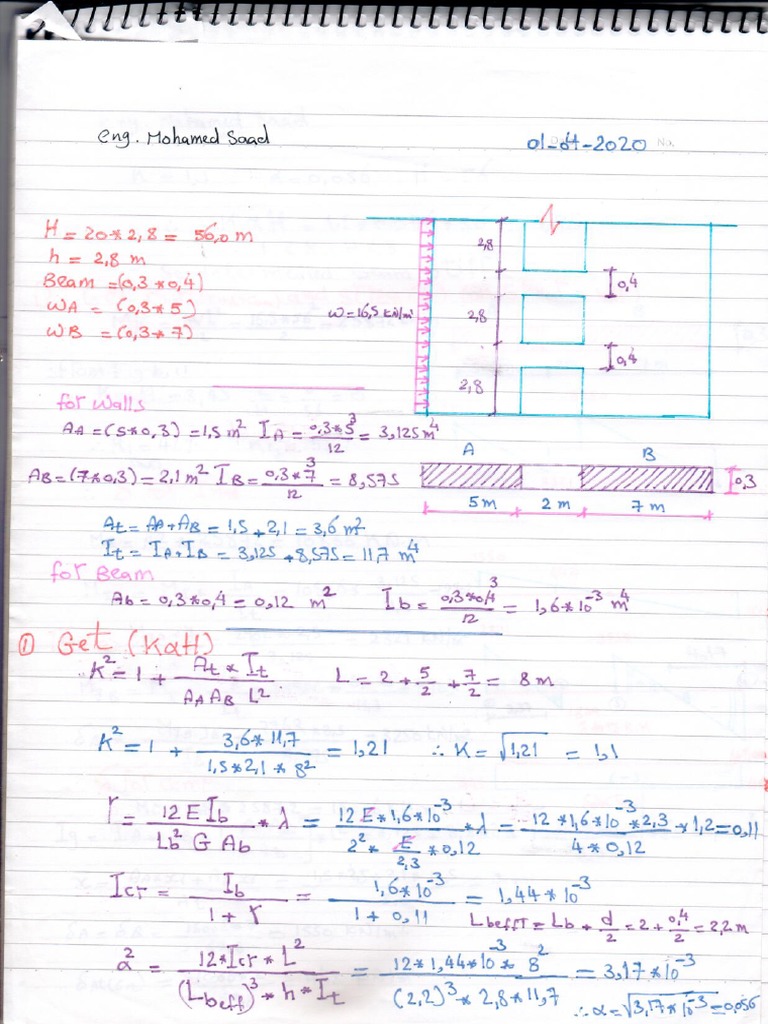 eng. Mohamed Saad
01-04-2020
H = 20*2,8 = 56,0 m
h = 2,8 m
Beam = (0,3*0,4)
WA = (0,3*5)
WB = (0,3*7)
w=16,5 kN/m'
2,8
2,8
2,8
0,4
0,4
for walls
AA = (5*0,3) = 1,5 m² IA = 0,3*5³/12 = 3,125 m⁴
AB = (7*0,3) = 2,1 m² IB = 0,3*7³/12 = 8,575
A B
0,3
5m 2m 7m
At = AA+AB = 1,5+2,1 = 3,6 m²
It = IA+IB = 3,125+8,575 = 11,7 m⁴
for Beam
Ab = 0,3*0,4 = 0,12 m² Ib = 0,3*0,4³/12 = 1,6*10⁻³ m⁴
① Get (KαH)
K² = 1 + At*It/AA AB L² L = 2+5/2+7/2 = 8m
K² = 1 + 3,6*11,7/1,5*2,1*8² = 1,21 ∴ K = √1,21 = 1,1
r = 12 E Ib/Lb² G Ab * λ = 12 E*1,6*10⁻³/2²*E/2,3*0,12 *λ = 12*1,6*10⁻³*2,3/4*0,12 *1,2 = 0,11
Icr = Ib/1+r = 1,6*10⁻³/1+0,11 = 1,44*10⁻³
Lbeff = Lb+d/2 = 2+0,4/2 = 2,2 m
α² = 12*Icr*L²/(Lbeff)³*h*It = 12*1,44*10⁻³*8²/(2,2)³*2,8*11,7 = 3,17*10⁻³
∴ α = √3,17*10⁻³ = 0,056